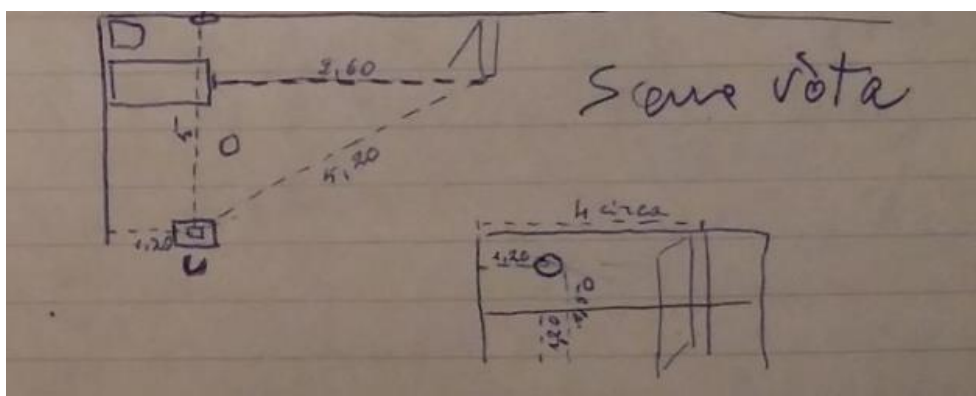 2,60
Scena vòta
5
5,20
1,20
4 circa
1,20
1,20